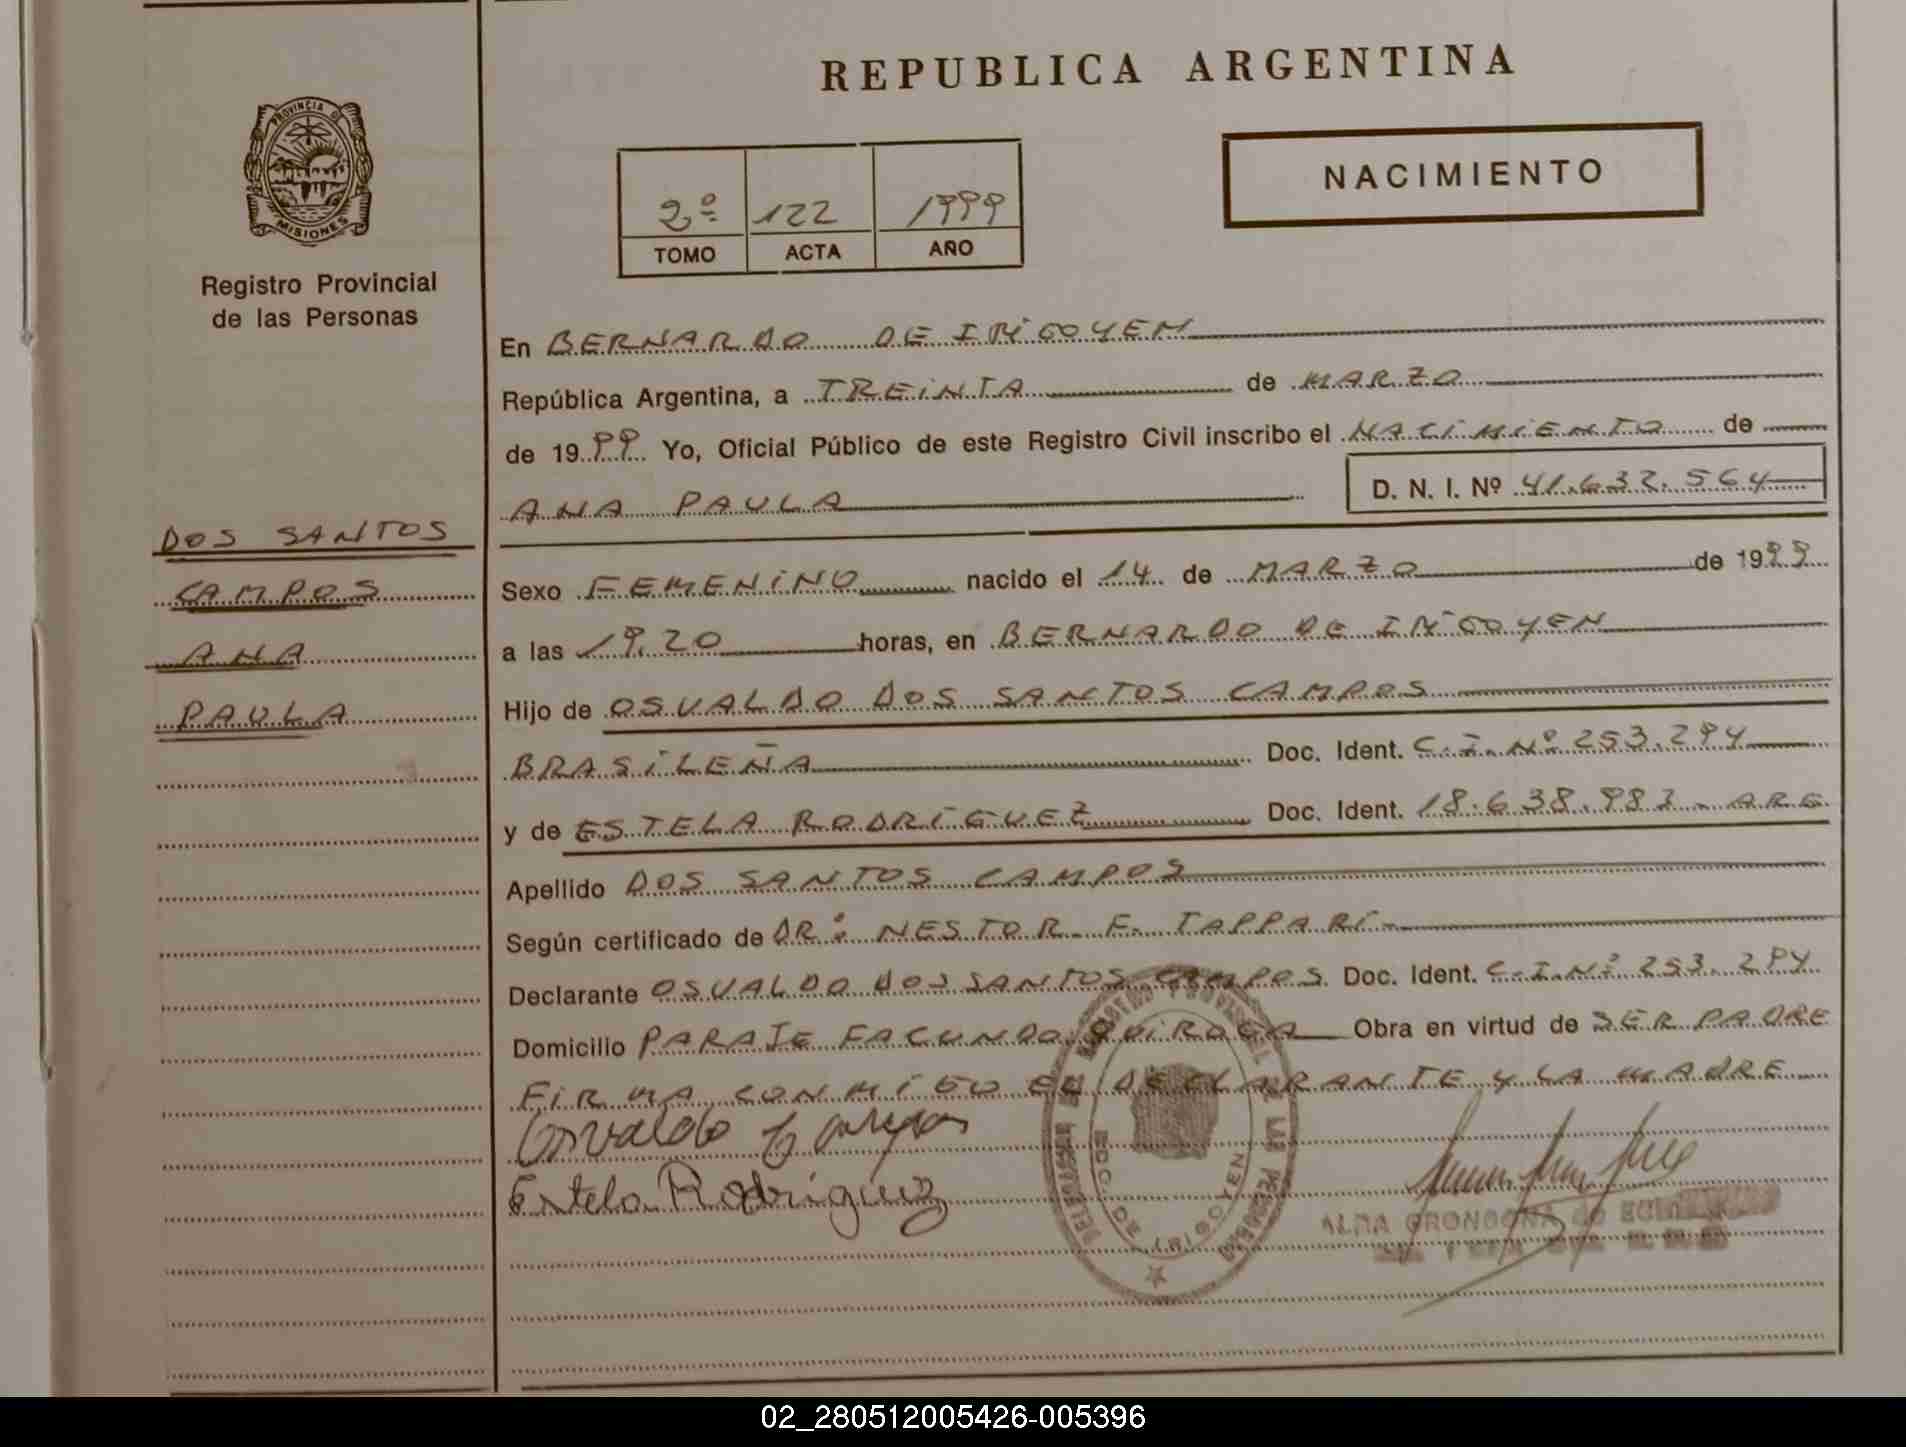 REPUBLICA ARGENTINA
PROVINCIA DE
MISIONES
Registro Provincial
de las Personas
2º 122 1999
TOMO ACTA AÑO
NACIMIENTO
DOS SANTOS
CAMPOS
ANA
PAULA
En BERNARDO DE IRIGOYEN
República Argentina, a TREINTA de MARZO
de 1999 Yo, Oficial Público de este Registro Civil inscribo el NACIMIENTO de
ANA PAULA D. N. I. Nº 41.632.564
Sexo FEMENINO nacido el 14 de MARZO de 1999
a las 19,20 horas, en BERNARDO DE IRIGOYEN
Hijo de OSVALDO DOS SANTOS CAMPOS
BRASILEÑA Doc. Ident. C.I. Nº 253.294
y de ESTELA RODRIGUEZ Doc. Ident. 18.638.983 - ARG.
Apellido DOS SANTOS CAMPOS
Según certificado de DR: NESTOR F. TAPPARI
Declarante OSVALDO DOS SANTOS CAMPOS Doc. Ident. C.I. Nº 253.294
Domicilio PARAJE FACUNDO QUIROGA Obra en virtud de SER PADRE
FIRMA CONMIGO EL DECLARANTE Y LA MADRE
Osvaldo Campos
Estela Rodriguez
02_280512005426-005396